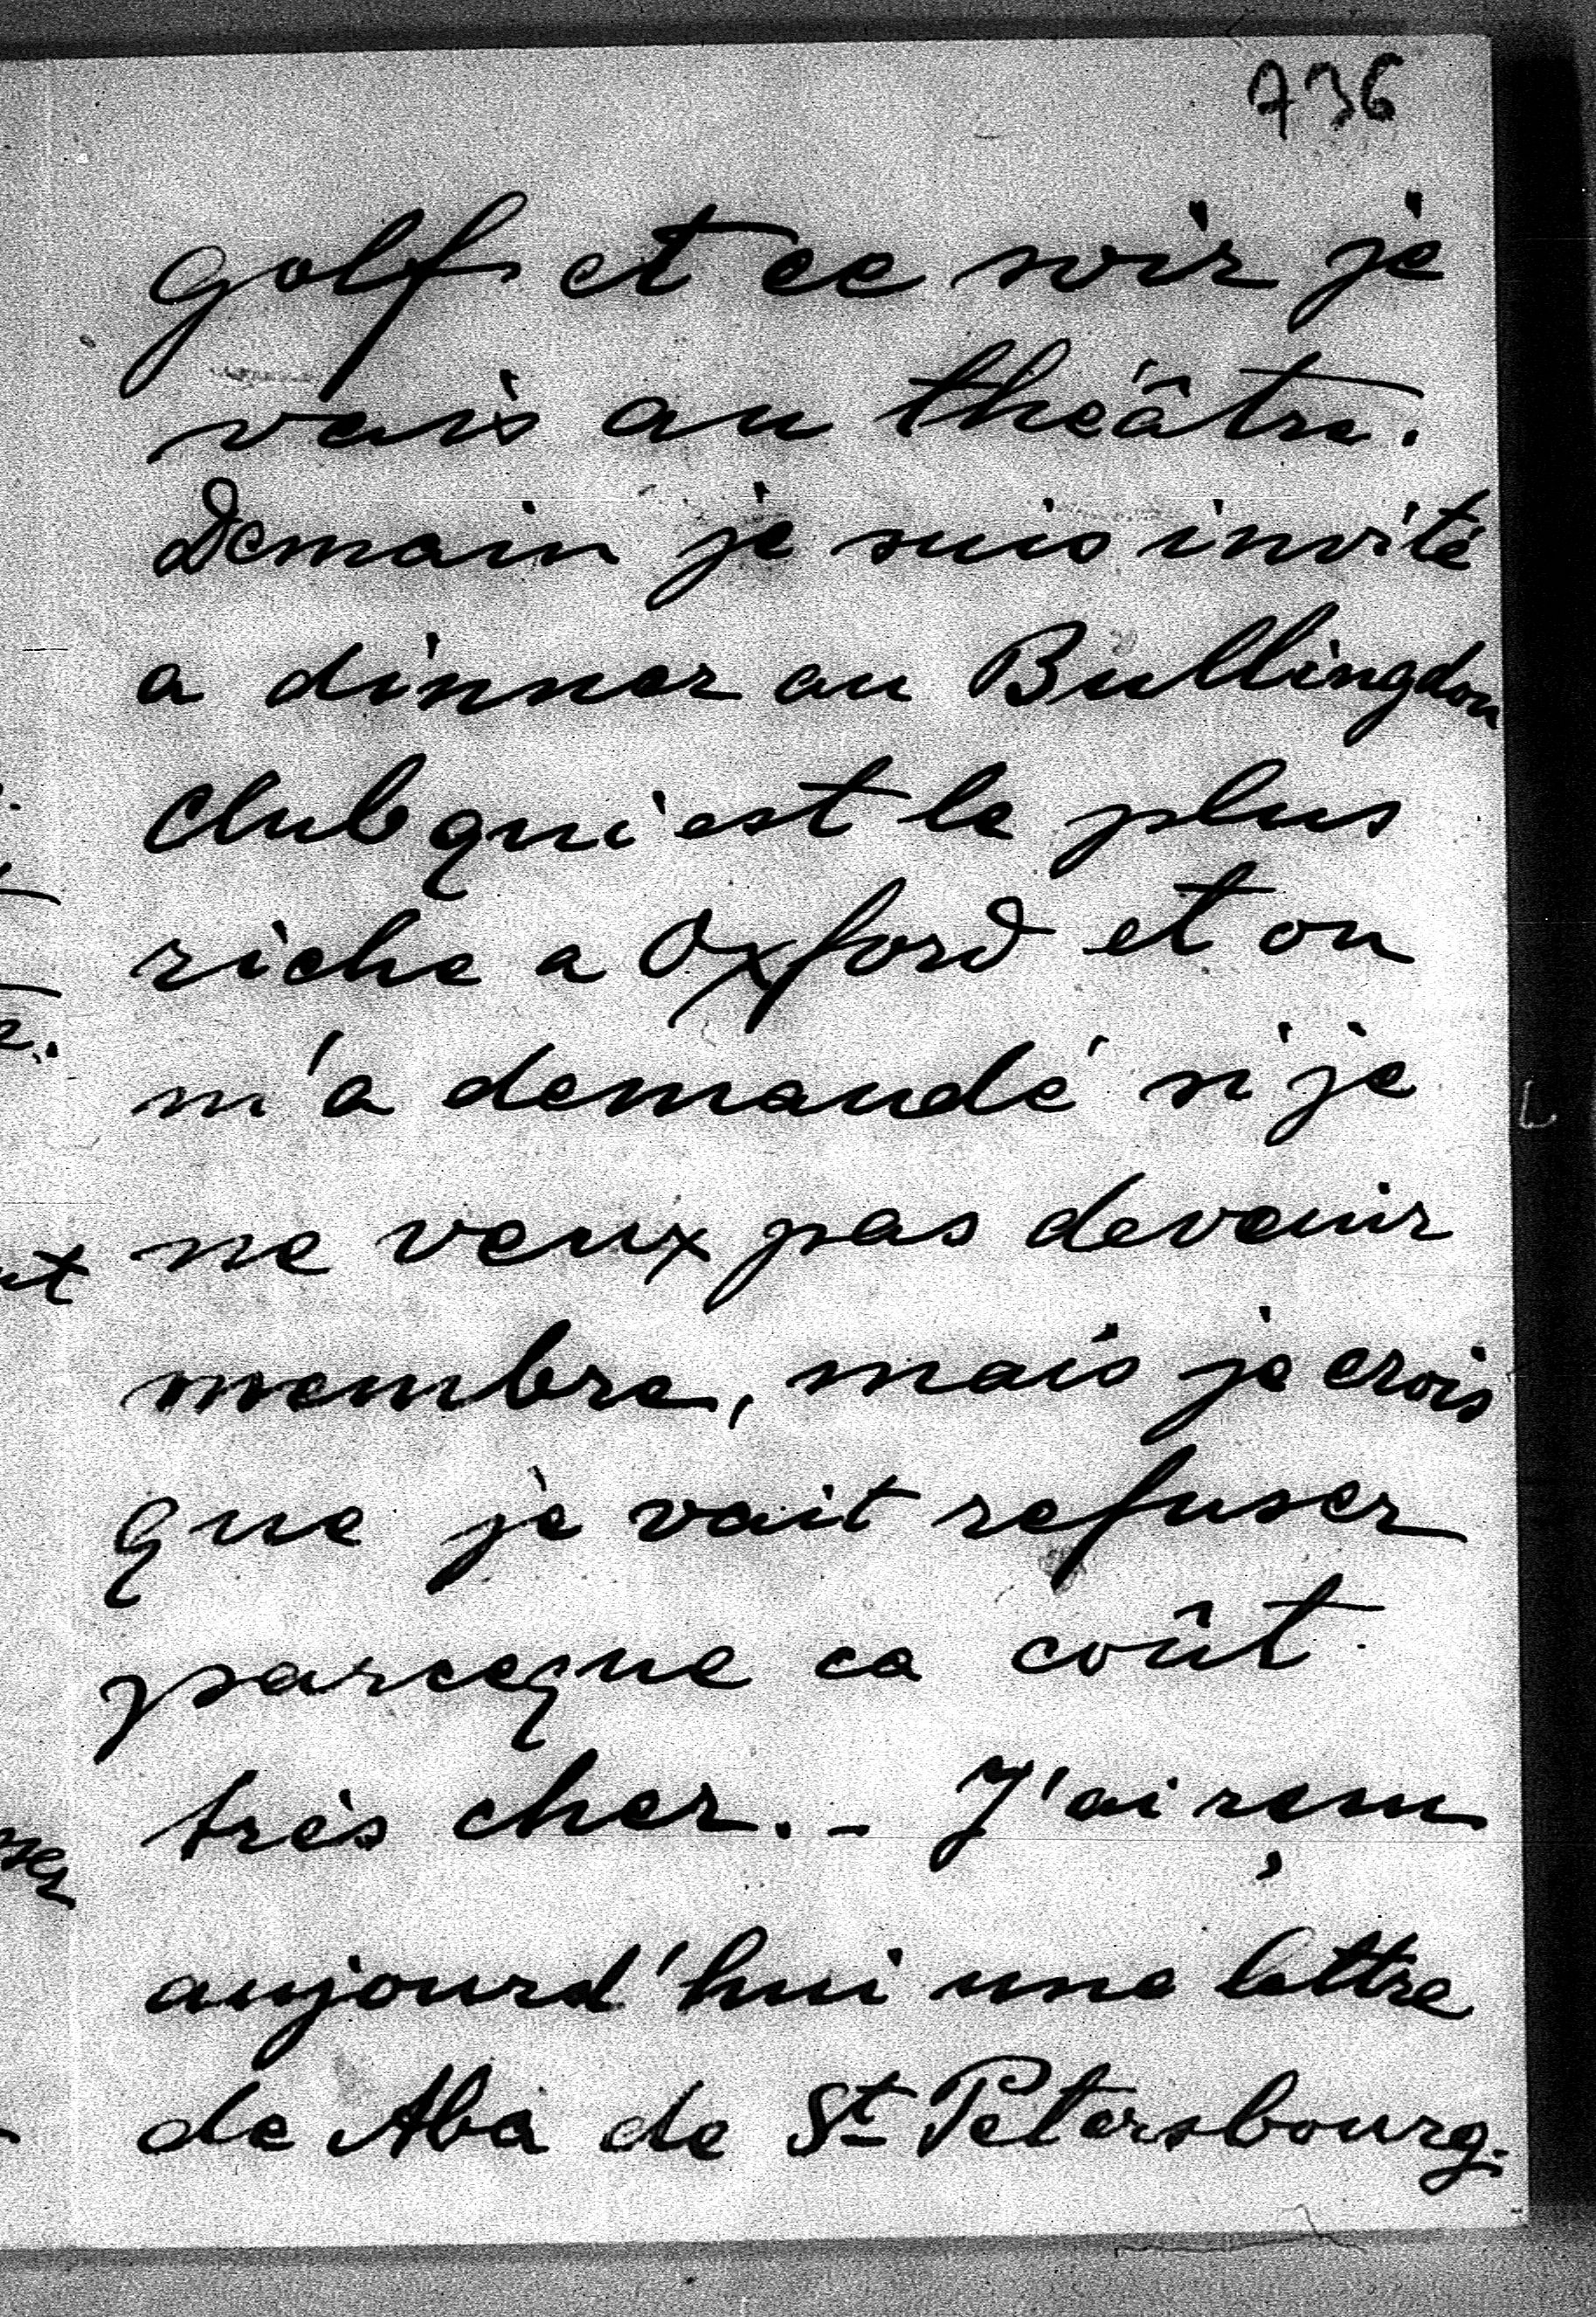 736
golf et ce soir je
vais au théâtre.
Demain je suis invité
a dinner au Bullingdon
Club qui est le plus
riche a Oxford et on
m'a demandé si je
ne veux pas devenir
membre, mais je crois
que je vait refuser
parceque ca coût
très cher. _ J'ai reçu
aujourd'hui une lettre
de Aba de St Petersbourg.